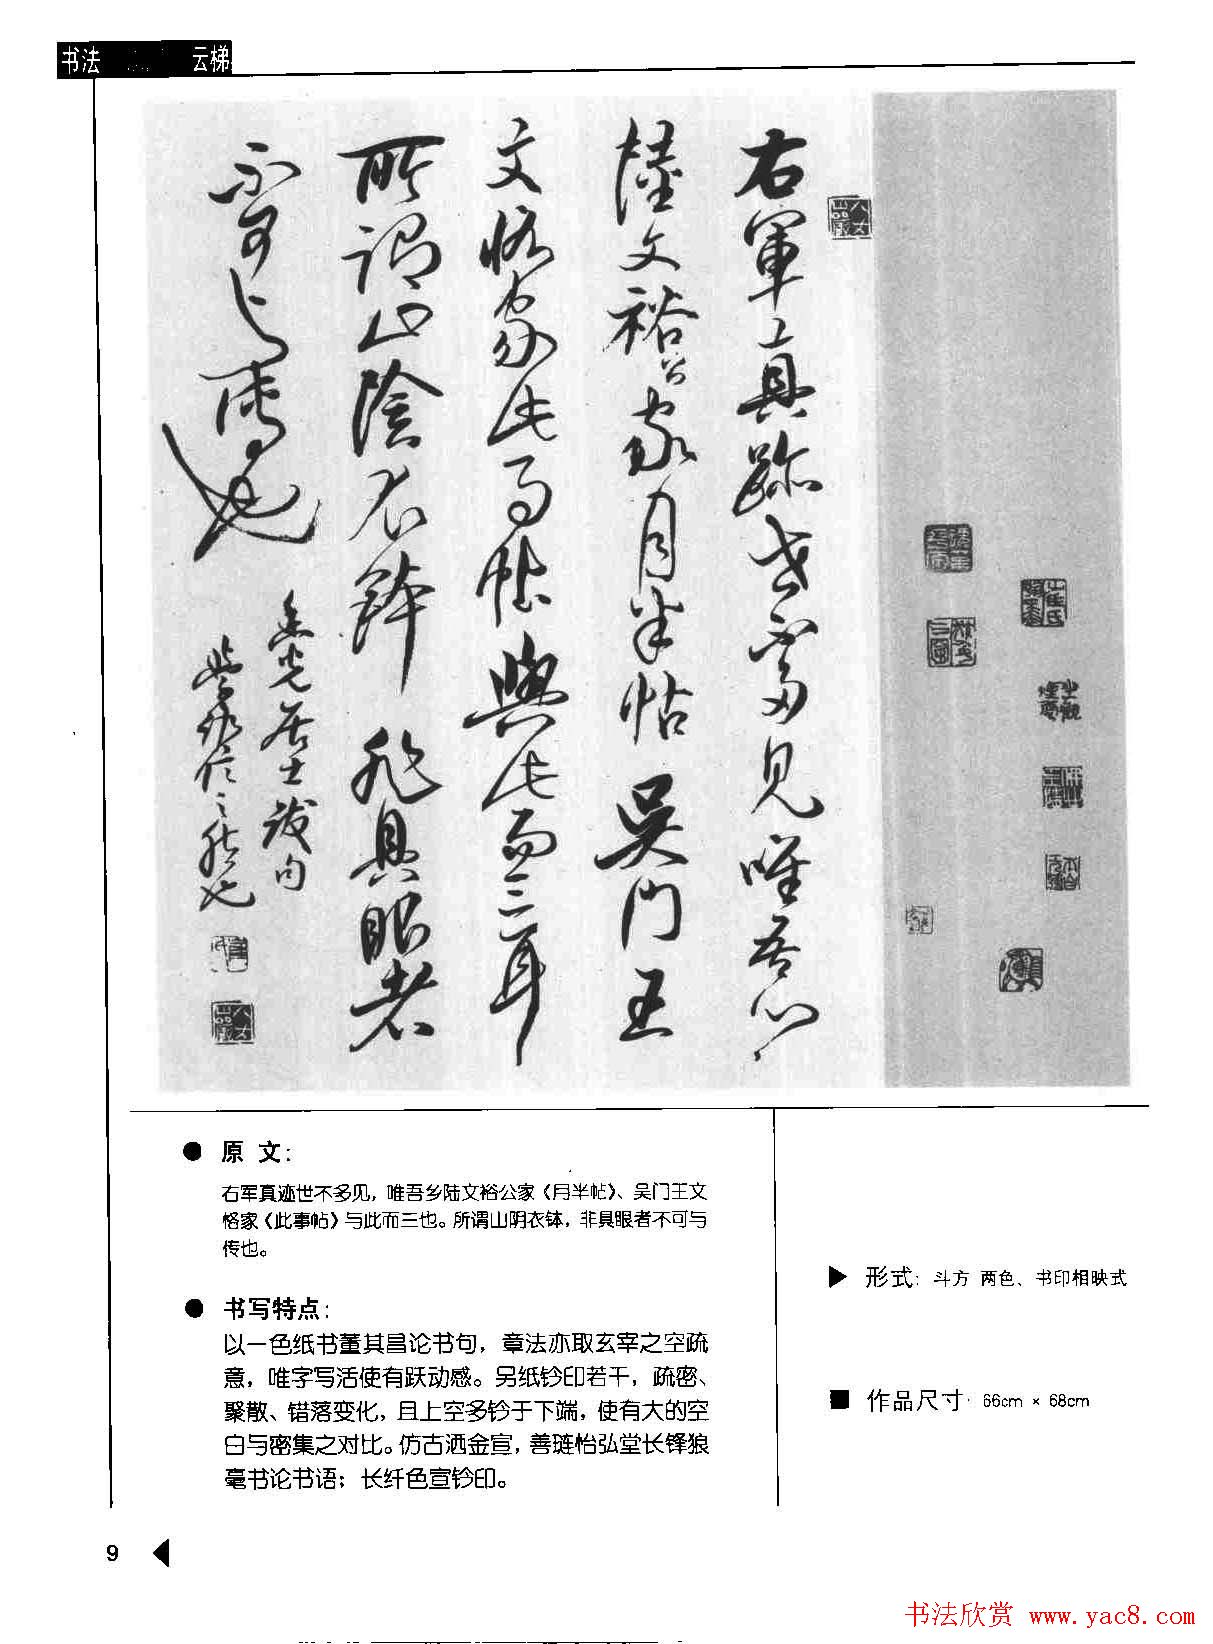 书法 云梯
右軍真跡世不多見唯吾乡
陸文裕公家月半帖吴门王
文恪家此事帖與此而三耳
所谓山陰衣鉢非具眼者
不可与傳也
玄宰
居士跋句
之然也
● 原 文：
右军真迹世不多见，唯吾乡陆文裕公家《月半帖》、吴门王文
恪家《此事帖》与此而三也。所谓山阴衣钵，非具眼者不可与
传也。
● 书写特点：
以一色纸书董其昌论书句，章法亦取玄宰之空疏
意，唯字写活使有跃动感。另纸钤印若干，疏密、
聚散、错落变化，且上空多钤于下端，使有大的空
白与密集之对比。仿古洒金宣，善琏怡弘堂长锋狼
毫书论书语；长纤色宣钤印。
▶ 形式：斗方 两色、书印相映式
■ 作品尺寸：66cm × 68cm
9 ◀
书法欣赏 www.yac8.com